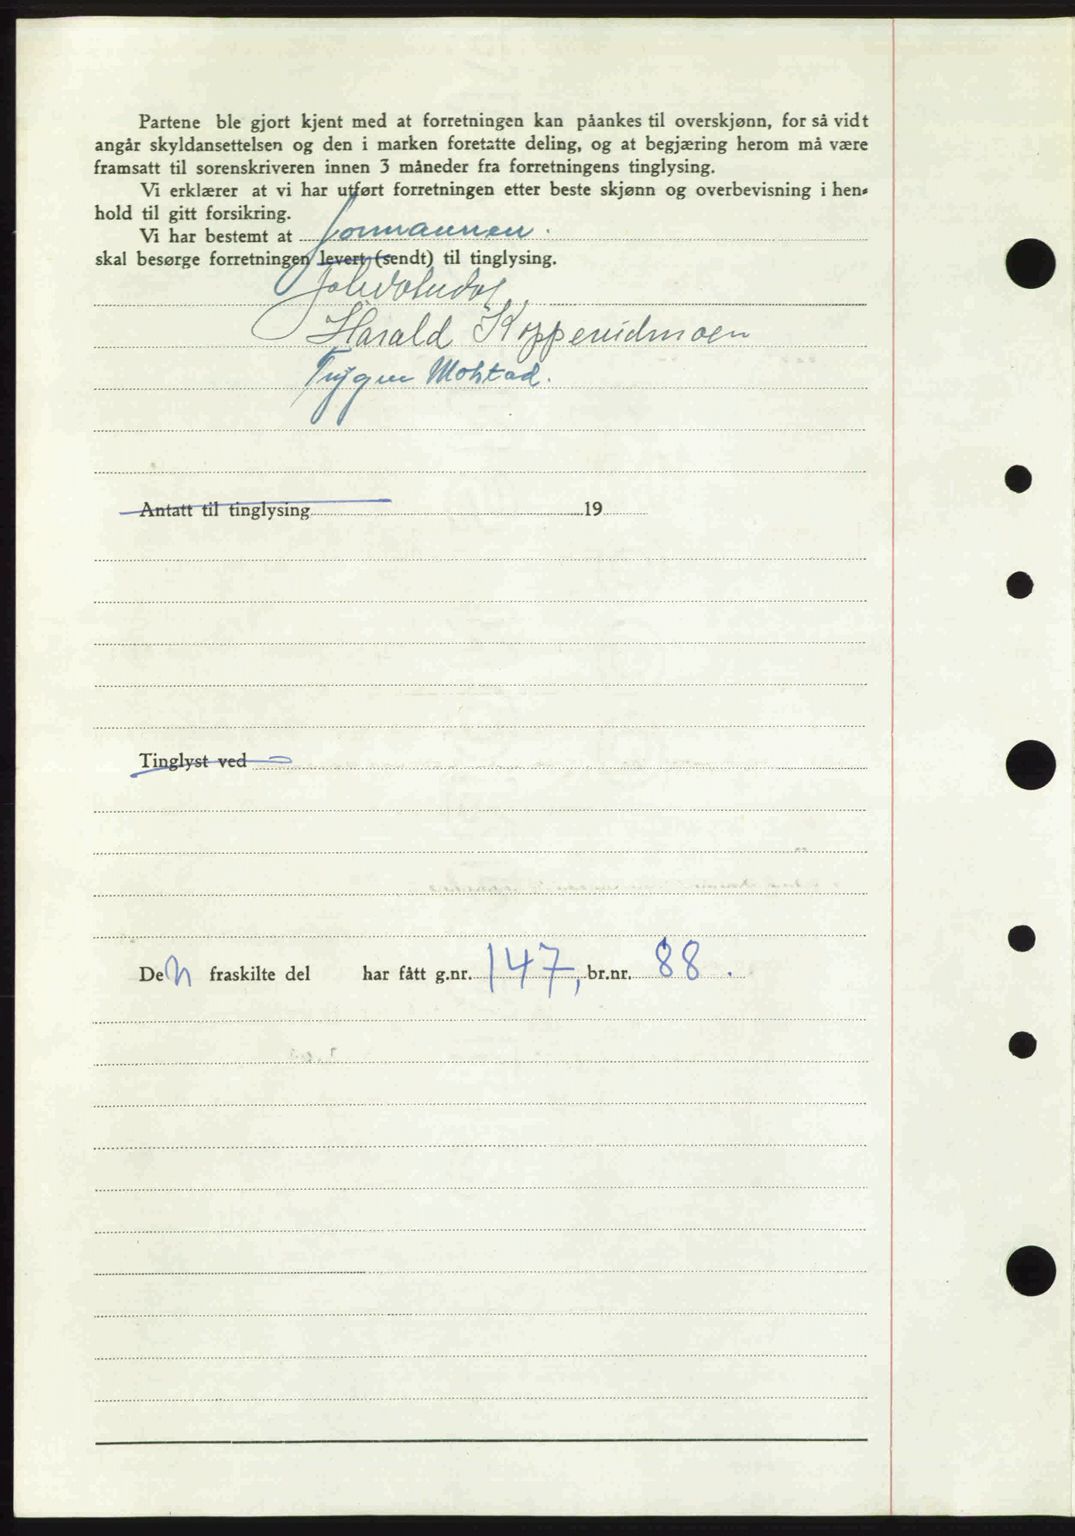 Partene ble gjort kjent med at forretningen kan påankes til overskjønn, for så vidt
angår skyldansettelsen og den i marken foretatte deling, og at begjæring herom må være
framsatt til sorenskriveren innen 3 måneder fra forretningens tinglysing.
Vi erklærer at vi har utført forretningen etter beste skjønn og overbevisning i hen-
hold til gitt forsikring.
Vi har bestemt at formannen.
skal besørge forretningen levert (sendt) til tinglysing.
Harald Koppervidmoen
Trygve Mohtad.
Antatt til tinglysing 19
Tinglyst ved
Den fraskilte del har fått g.nr. 147, br.nr. 88.